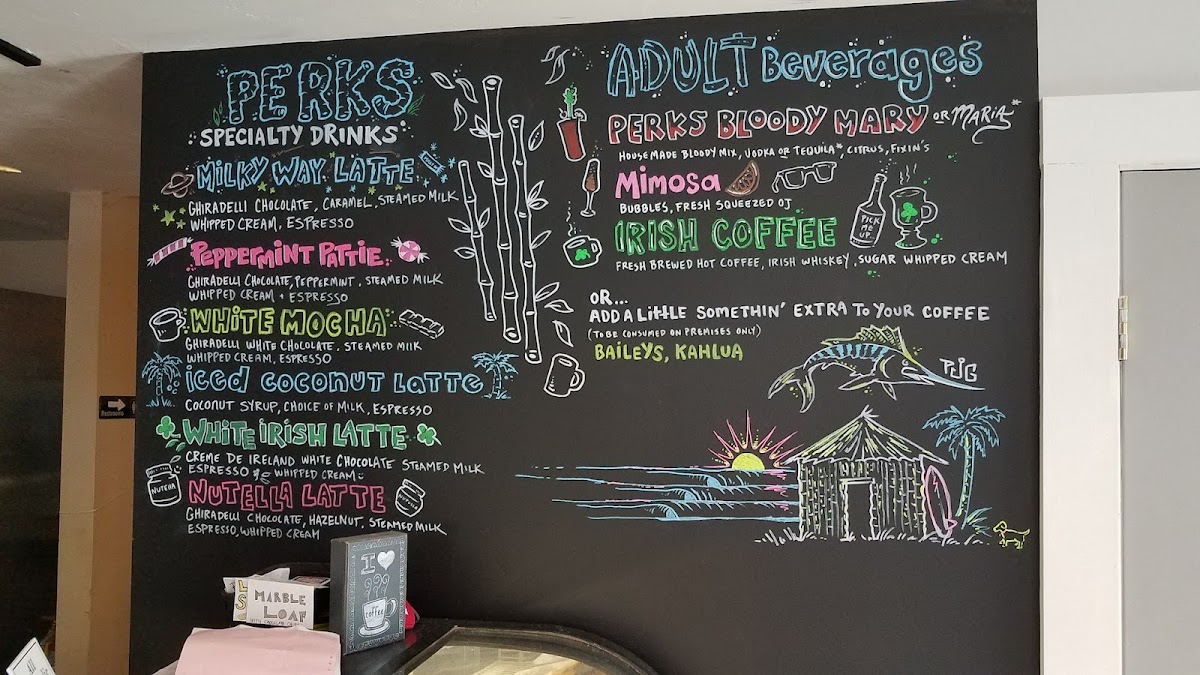 PERKS
SPECIALTY DRINKS
MILKY WAY LATTE
GHIRADELLI CHOCOLATE, CARAMEL, STEAMED MILK
WHIPPED CREAM, ESPRESSO
PEPPERMINT PATTIE
GHIRADELLI CHOCOLATE, PEPPERMINT, STEAMED MILK
WHIPPED CREAM + ESPRESSO
WHITE MOCHA
GHIRADELLI WHITE CHOCOLATE, STEAMED MILK
WHIPPED CREAM, ESPRESSO
ICED COCONUT LATTE
COCONUT SYRUP, CHOICE OF MILK, ESPRESSO
WHITE IRISH LATTE
CREME DE IRELAND WHITE CHOCOLATE STEAMED MILK
ESPRESSO & WHIPPED CREAM
NUTELLA LATTE
GHIRADELLI CHOCOLATE, HAZELNUT, STEAMED MILK
ESPRESSO, WHIPPED CREAM
NUTELLA
ADULT Beverages
PERKS BLOODY MARY OR MARIA*
HOUSEMADE BLOODY MIX, VODKA OR TEQUILA*, CITRUS, FIXIN'S
MIMOSA
BUBBLES, FRESH SQUEEZED OJ
IRISH COFFEE
PICK
ME
UP
FRESH BREWED HOT COFFEE, IRISH WHISKEY, SUGAR WHIPPED CREAM
OR...
ADD A LITTLE SOMETHIN' EXTRA TO YOUR COFFEE
(TO BE CONSUMED ON PREMISES ONLY)
BAILEYS, KAHLUA
PJG
Restrooms
MARBLE
LOAF
I
coffee